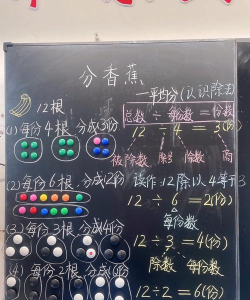 分香蕉
一平均分(认识除法)
12根
总数÷每份数=份数
(1)每份4根,分成3份
12÷4=3(份)
被除数 除号 除数 商
(2)每份6根,分成2份
读作:12除以4等于3
12÷6=2(份)
每份数
(3)每份3根,分成4份
12÷3=4(份)
除数 每份数
(4)每份2根,分成6份
12÷2=6(份)